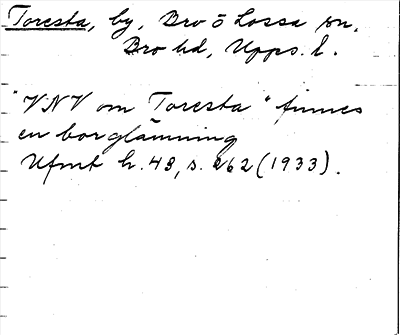 Toresta, by, Bro o Lossa sn,
Bro hd, Upps. l.
"VNV om Toresta" finnes
en borglämning
Ufmt h. 48, s. 262 (1933).